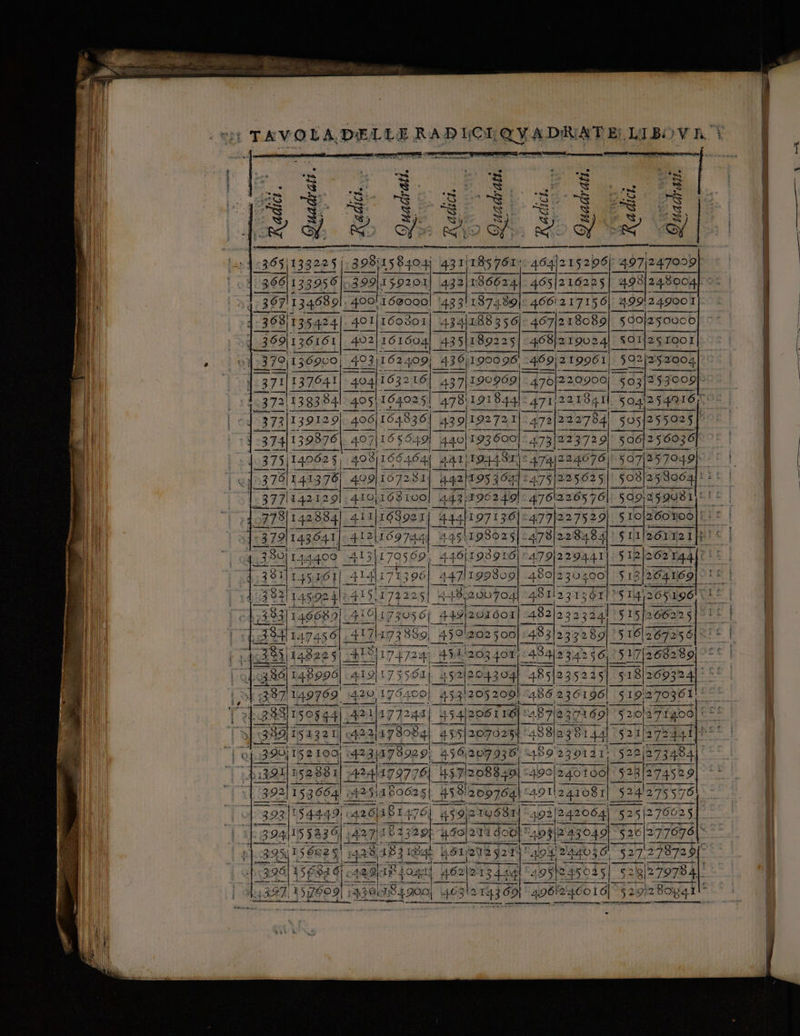 TAVOLA DELLE RADICI QVADRATE LIBO VN
Radici. Quadrati. Radici. Quadrati. Radici. Quadrati. Radici. Quadrati. Radici. Quadrati.
365 133225 398 158404 431 185761 464 215296 497 247009
366 133956 399 159201 432 186624 465 216225 498 248004
367 134689 400 160000 433 187489 466 217156 499 249001
368 135424 401 160801 434 188356 467 218089 500 250000
369 136161 402 161604 435 189225 468 219024 501 251001
370 136900 403 162409 436 190096 469 219961 502 252004
371 137641 404 163216 437 190969 470 220900 503 253009
372 138384 405 164025 478 191844 471 221841 504 254016
373 139129 406 164836 439 192721 472 222784 505 255025
374 139876 407 165649 440 193600 473 223729 506 256036
375 140625 408 166464 441 194481 474 224676 507 257049
376 141376 409 167281 442 195364 475 225625 508 258064
377 142129 410 168100 443 196249 476 226576 509 259081
778 142884 411 168921 444 197136 477 227529 510 260100
379 143641 412 169744 445 198025 478 228484 511 261121
380 144400 413 170569 446 198916 479 229441 512 262144
381 145161 414 171396 447 199809 480 230400 513 264169
382 145924 415 172225 448 200704 481 231361 514 265196
383 146689 416 173056 449 201601 482 232324 515 266225
384 147456 417 173889 450 202500 483 233289 516 267256
385 148225 418 174724 451 203401 484 234256 517 268289
386 148996 419 175561 452 204304 485 235225 518 269324
387 149769 420 176400 453 205209 486 236196 519 270361
388 150544 421 177241 454 206116 487 237169 520 271400
389 151321 422 178084 455 207025 488 238144 521 272441
390 152100 423 178929 456 207936 489 239121 522 273484
391 152881 424 179776 457 208849 490 240100 523 274529
392 153664 425 180625 458 209764 491 241081 524 275576
393 154449 426 181476 459 210681 492 242064 525 276625
394 155236 427 182329 460 211600 493 243049 526 277676
395 156025 428 183184 461 212521 494 244036 527 278729
396 156816 429 184041 462 213444 495 245025 528 279784
397 157609 430 184900 463 214369 496 246016 529 280841